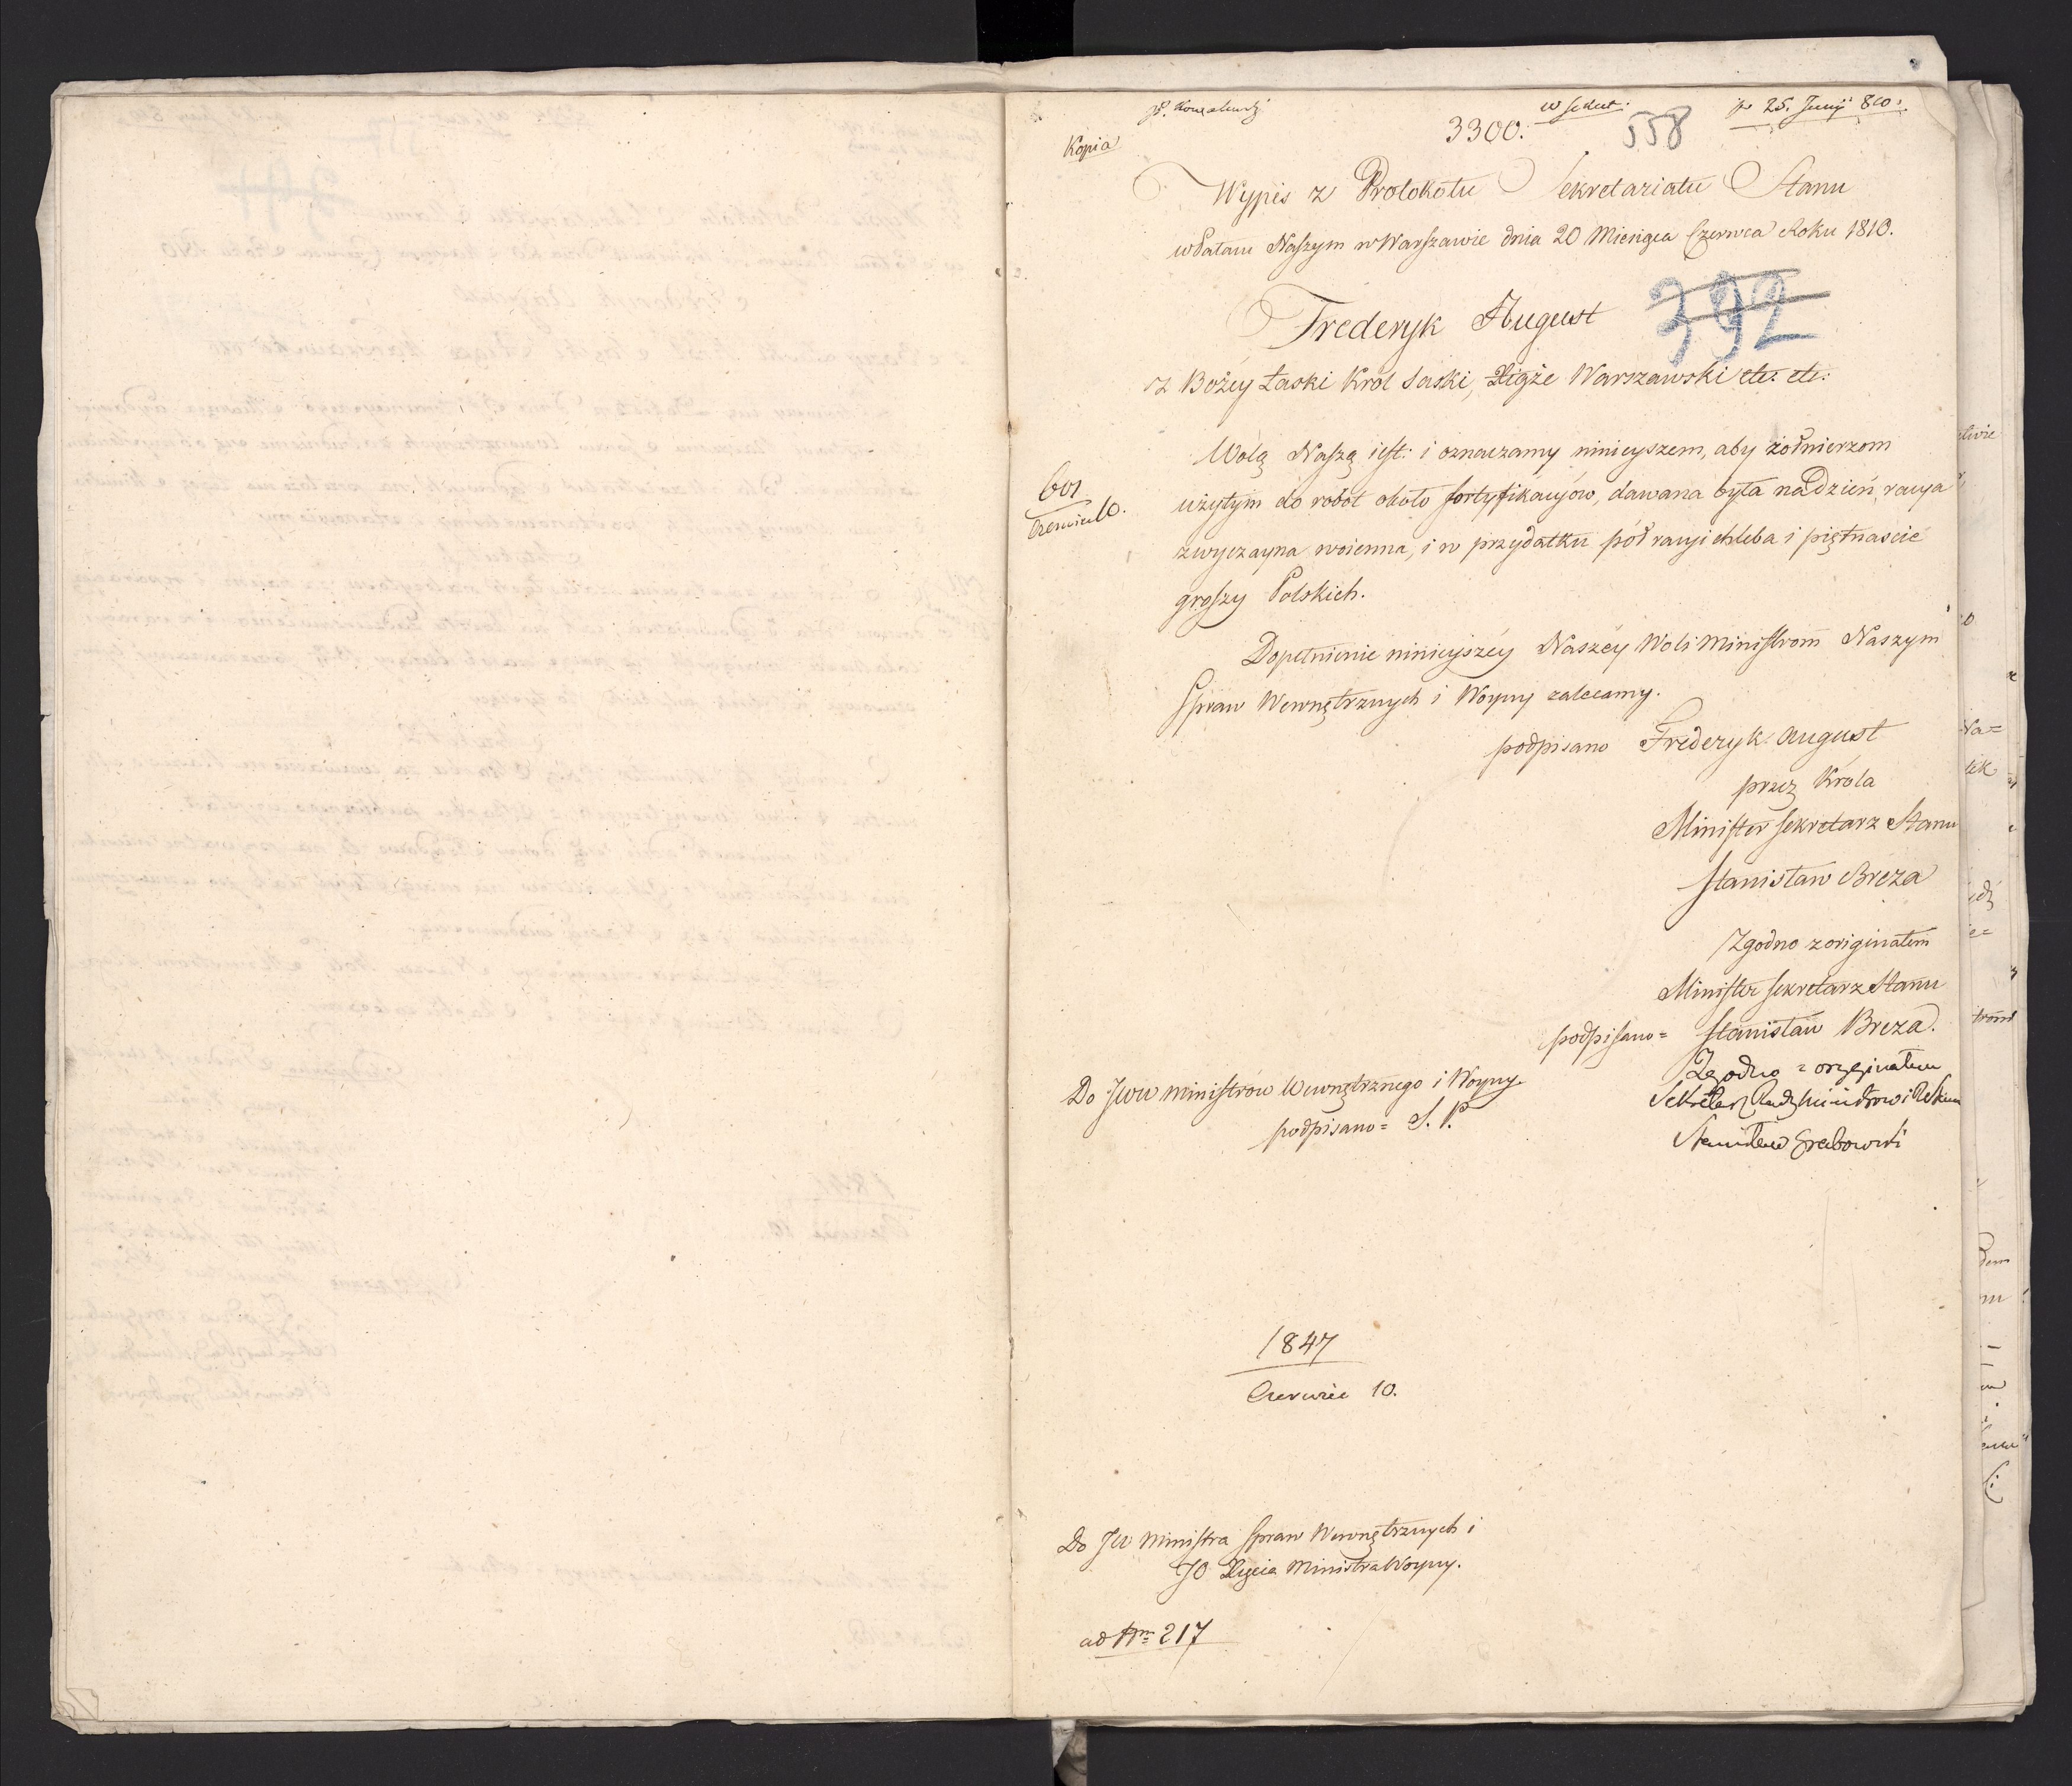 Kopia
3300.
558
pr 25. Junij 810.
Wypis z Protokołu Sekretariatu Stanu
w Pałacu Naszym w Warszawie dnia 20 Miesiąca Czerwca Roku 1810.
392
Frederyk August
z Bożey Łaski Krol Saski, Xiąże Warszawski etc: etc:
601
Czerwiec 10.
Wolą Naszą iest: i oznaczamy ninieyszem, aby żołnierzom
użytym do robot około fortyfikacyów, dawana była na Dzień, racya
zwyczayna woienna, i w przydatku pół racyi chleba i piętnascie
groszy Polskich.
Dopełnienie ninieyszéy Naszéy Woli Ministrom Naszym
Spraw Wewnętrznych i Woyny zalecamy.
podpisano Frederyk August
przez Króla
Minister Sekretarz Stanu
Stanisław Breza
Zgodno z originałem
Minister Sekretarz Stanu
podpisano = Stanisław Breza.
Zgodno z oryginałem
Sekretarz Rady Ministrow i R. Stanu
Stanisław Grabowski
Do JWW Ministrów Wewnętrznego i Woyny.
podpisano = S. P.
1847
Czerwiec 10.
Do JW Ministra Spraw Wewnętrznych i
JO Xięcia Ministra Woyny.
ad Nrm 217